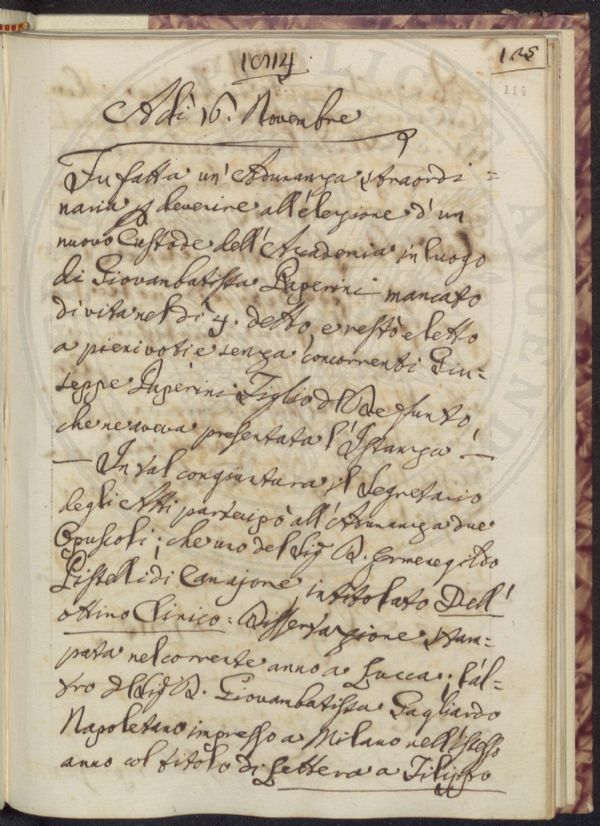 1814
125
114
Adì 16. Novembre
Fu fatta un' Adunanza straordi=
naria p devenire all'elezione d'un
nuovo Custode dell'Accademia in luogo
di Giovanbatista Paperini mancato
di vita nel dì 4. detto, e restò eletto
a pieni voti e senza concorrenti Giu=
seppe Paperini Figlio del Defunto
che ne aveva presentata l'Istanza —
— In tal congiuntura il Segretario
degli Atti partecipò all'Adunanza due
Opuscoli; che uno del Sig D. Ermenegildo
Pistelli di Camajone, intitolato Dell'
ottimo Clinico = Dissertazione stam=
pata nel corrente anno a Lucca; l'al=
tro del Sig D. Giovanbatista Gagliardo
Napoletano impresso a Milano nell'istesso
anno col titolo di Lettera a Filippo